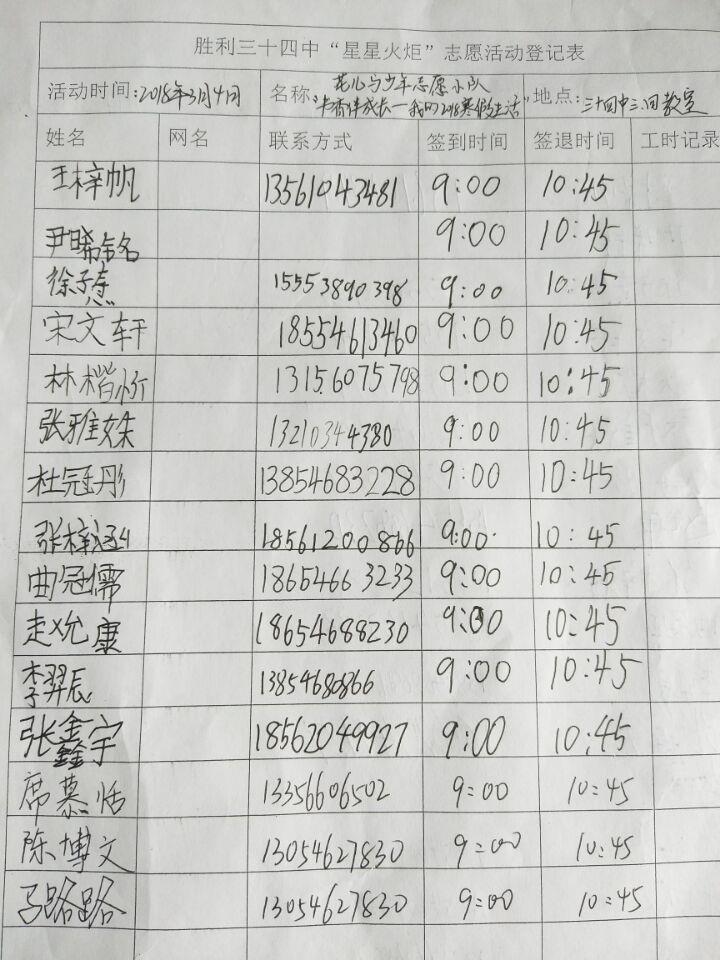 胜利三十四中“星星火炬”志愿活动登记表
活动时间:2018年3月4日 名称:花儿与少年志愿小队 “书香伴成长—我的2018寒假生活” 地点:三十四中三.四教室
姓名 网名 联系方式 签到时间 签退时间 工时记录
王梓帆 13561043481 9:00 10:45
尹晞铭 9:00 10:45
徐子惠 15553890398 9:00 10:45
宋文轩 18554613460 9:00 10:45
林楷炘 13156075798 9:00 10:45
张雅姝 13210344380 9:00 10:45
杜冠彤 13854683228 9:00 10:45
张梓涵 18561200866 9:00 10:45
曲冠儒 18654663233 9:00 10:45
赵允康 18654688230 9:00 10:45
李羿辰 13854680866 9:00 10:45
张鑫宇 18562049927 9:00 10:45
席慕恬 13356606502 9:00 10:45
陈博文 13054627830 9:00 10:45
马路路 13054627830 9:00 10:45